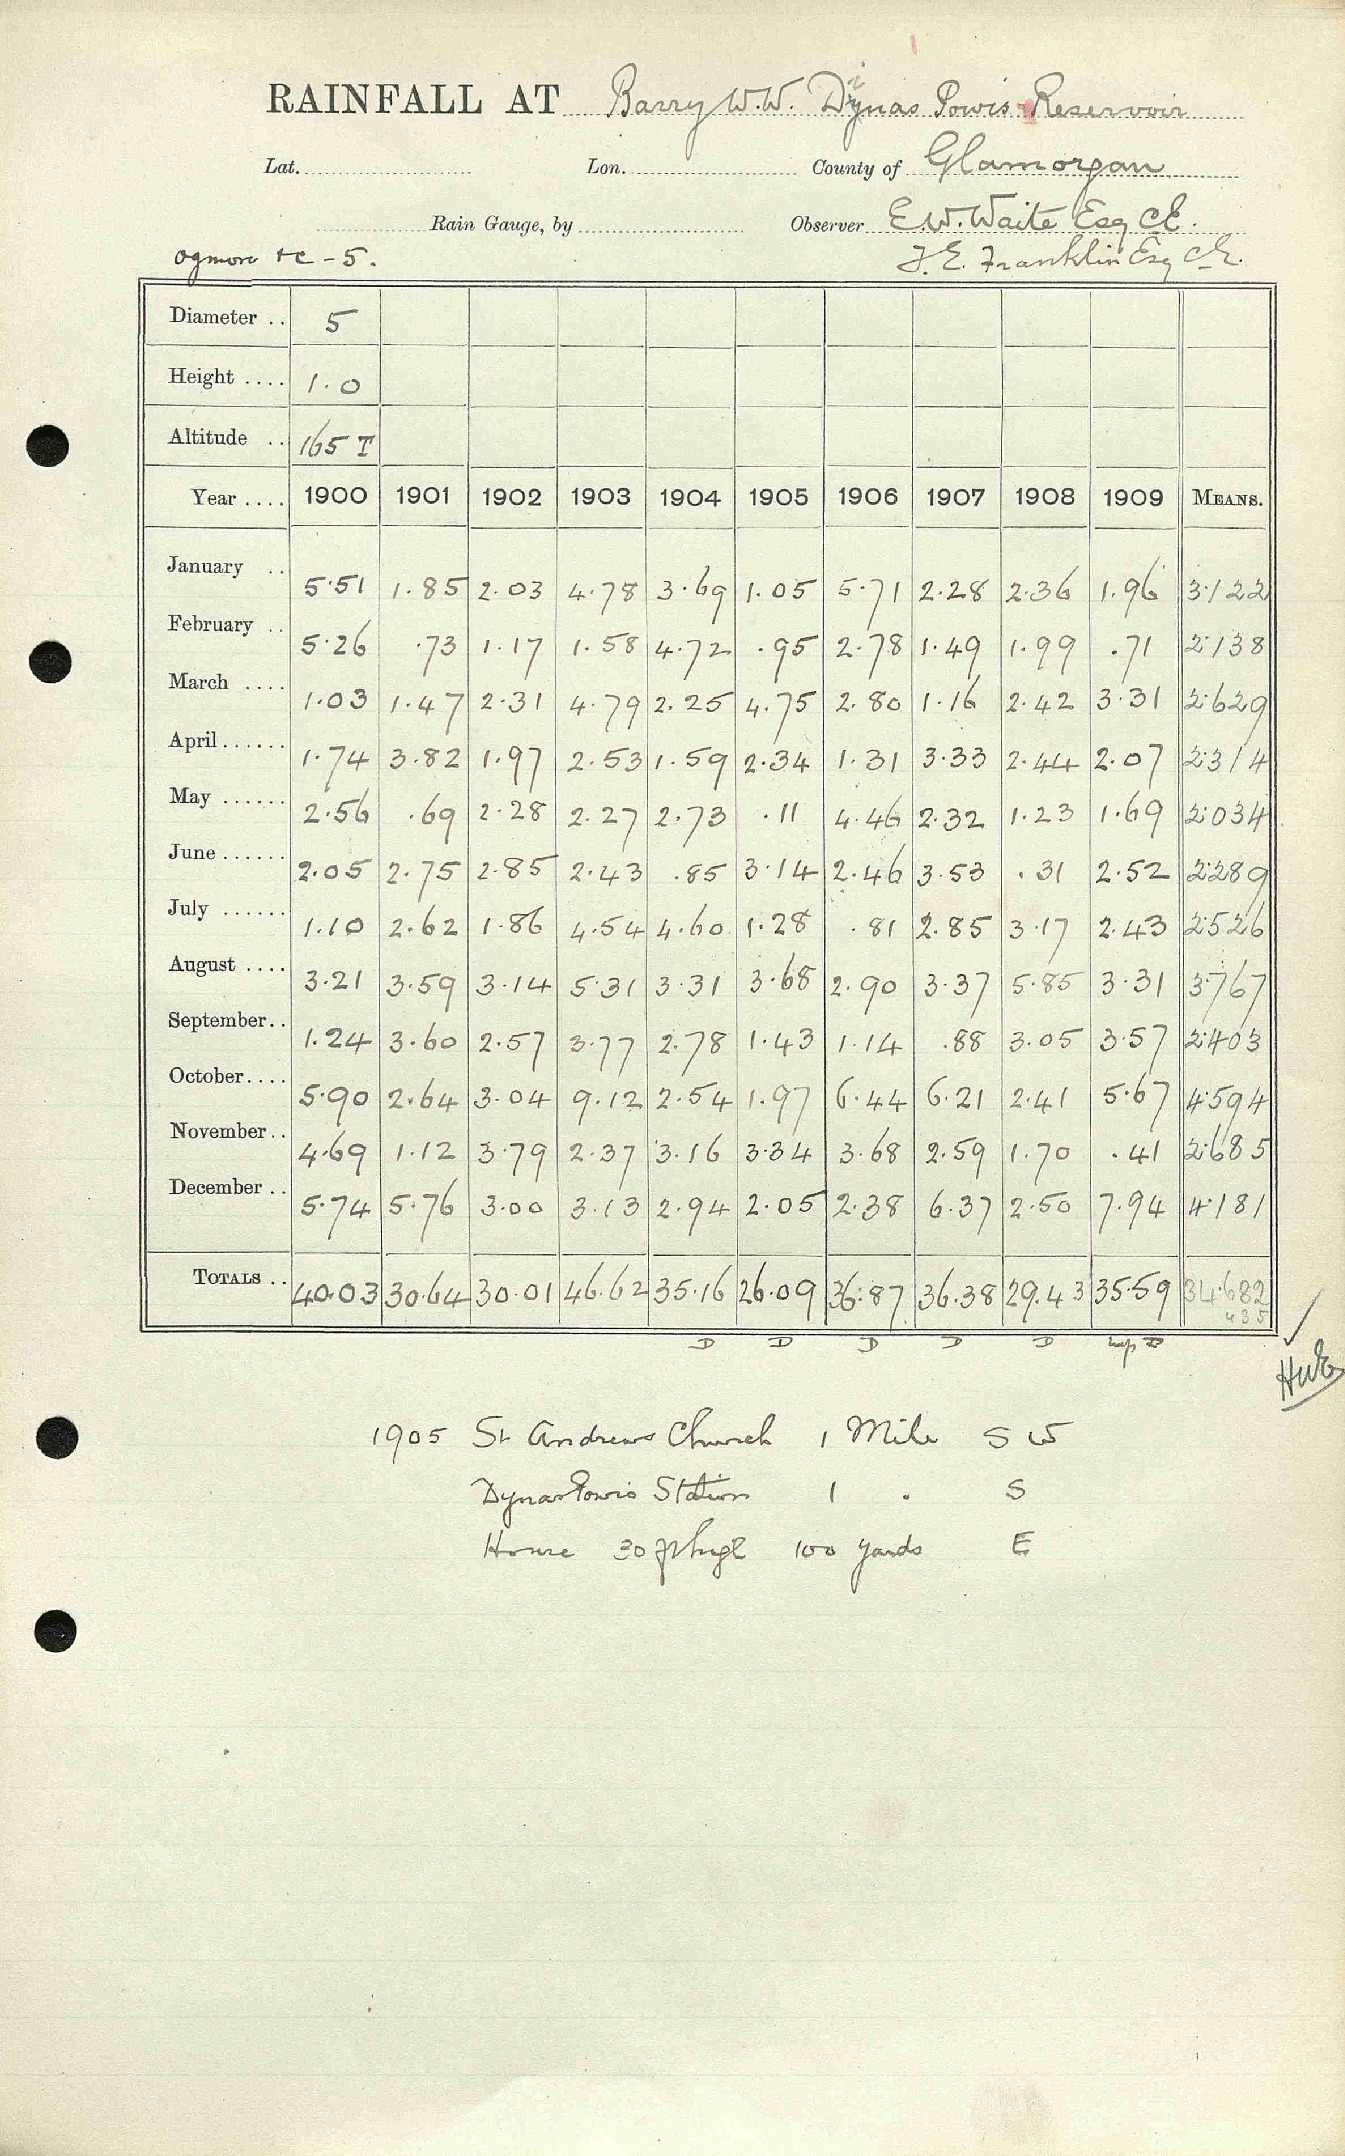 RAINFALL AT Barry W.W. Dynas Powis Reservoir
Lat. Lon. County of Glamorgan
Rain Gauge, by Observer E.W. Waite Esq CE.
Ogmore &c - 5. F. E. Franklin Esq CE.
Diameter .. 5
Height .... 1.0
Altitude .. 165 T
Year .... 1900 1901 1902 1903 1904 1905 1906 1907 1908 1909 MEANS.
January .. 5.51 1.85 2.03 4.78 3.69 1.05 5.71 2.28 2.36 1.96 3.122
February .. 5.26 .73 1.17 1.58 4.72 .95 2.78 1.49 1.99 .71 2.138
March .... 1.03 1.47 2.31 4.79 2.25 4.75 2.80 1.16 2.42 3.31 2.629
April...... 1.74 3.82 1.97 2.53 1.59 2.34 1.31 3.33 2.44 2.07 2.314
May ...... 2.56 .69 2.28 2.27 2.73 .11 4.46 2.32 1.23 1.69 2.034
June ...... 2.05 2.75 2.85 2.43 .85 3.14 2.46 3.53 .31 2.52 2.289
July ...... 1.10 2.62 1.86 4.54 4.60 1.28 .81 2.85 3.17 2.43 2.526
August .... 3.21 3.59 3.14 5.31 3.31 3.68 2.90 3.37 5.85 3.31 3.767
September.. 1.24 3.60 2.57 3.77 2.78 1.43 1.14 .88 3.05 3.57 2.403
October.... 5.90 2.64 3.04 9.12 2.54 1.97 6.44 6.21 2.41 5.67 4.594
November.. 4.69 1.12 3.79 2.37 3.16 3.34 3.68 2.59 1.70 .41 2.685
December .. 5.74 5.76 3.00 3.13 2.94 2.05 2.38 6.37 2.50 7.94 4.181
TOTALS .. 40.03 30.64 30.01 46.62 35.16 26.09 36.87 36.38 29.43 35.59 34.682
435
D D D D D D
1905 St Andrews Church 1 Mile S W
Dynas Powis Station 1 . S
House 30 ft high 100 yards E